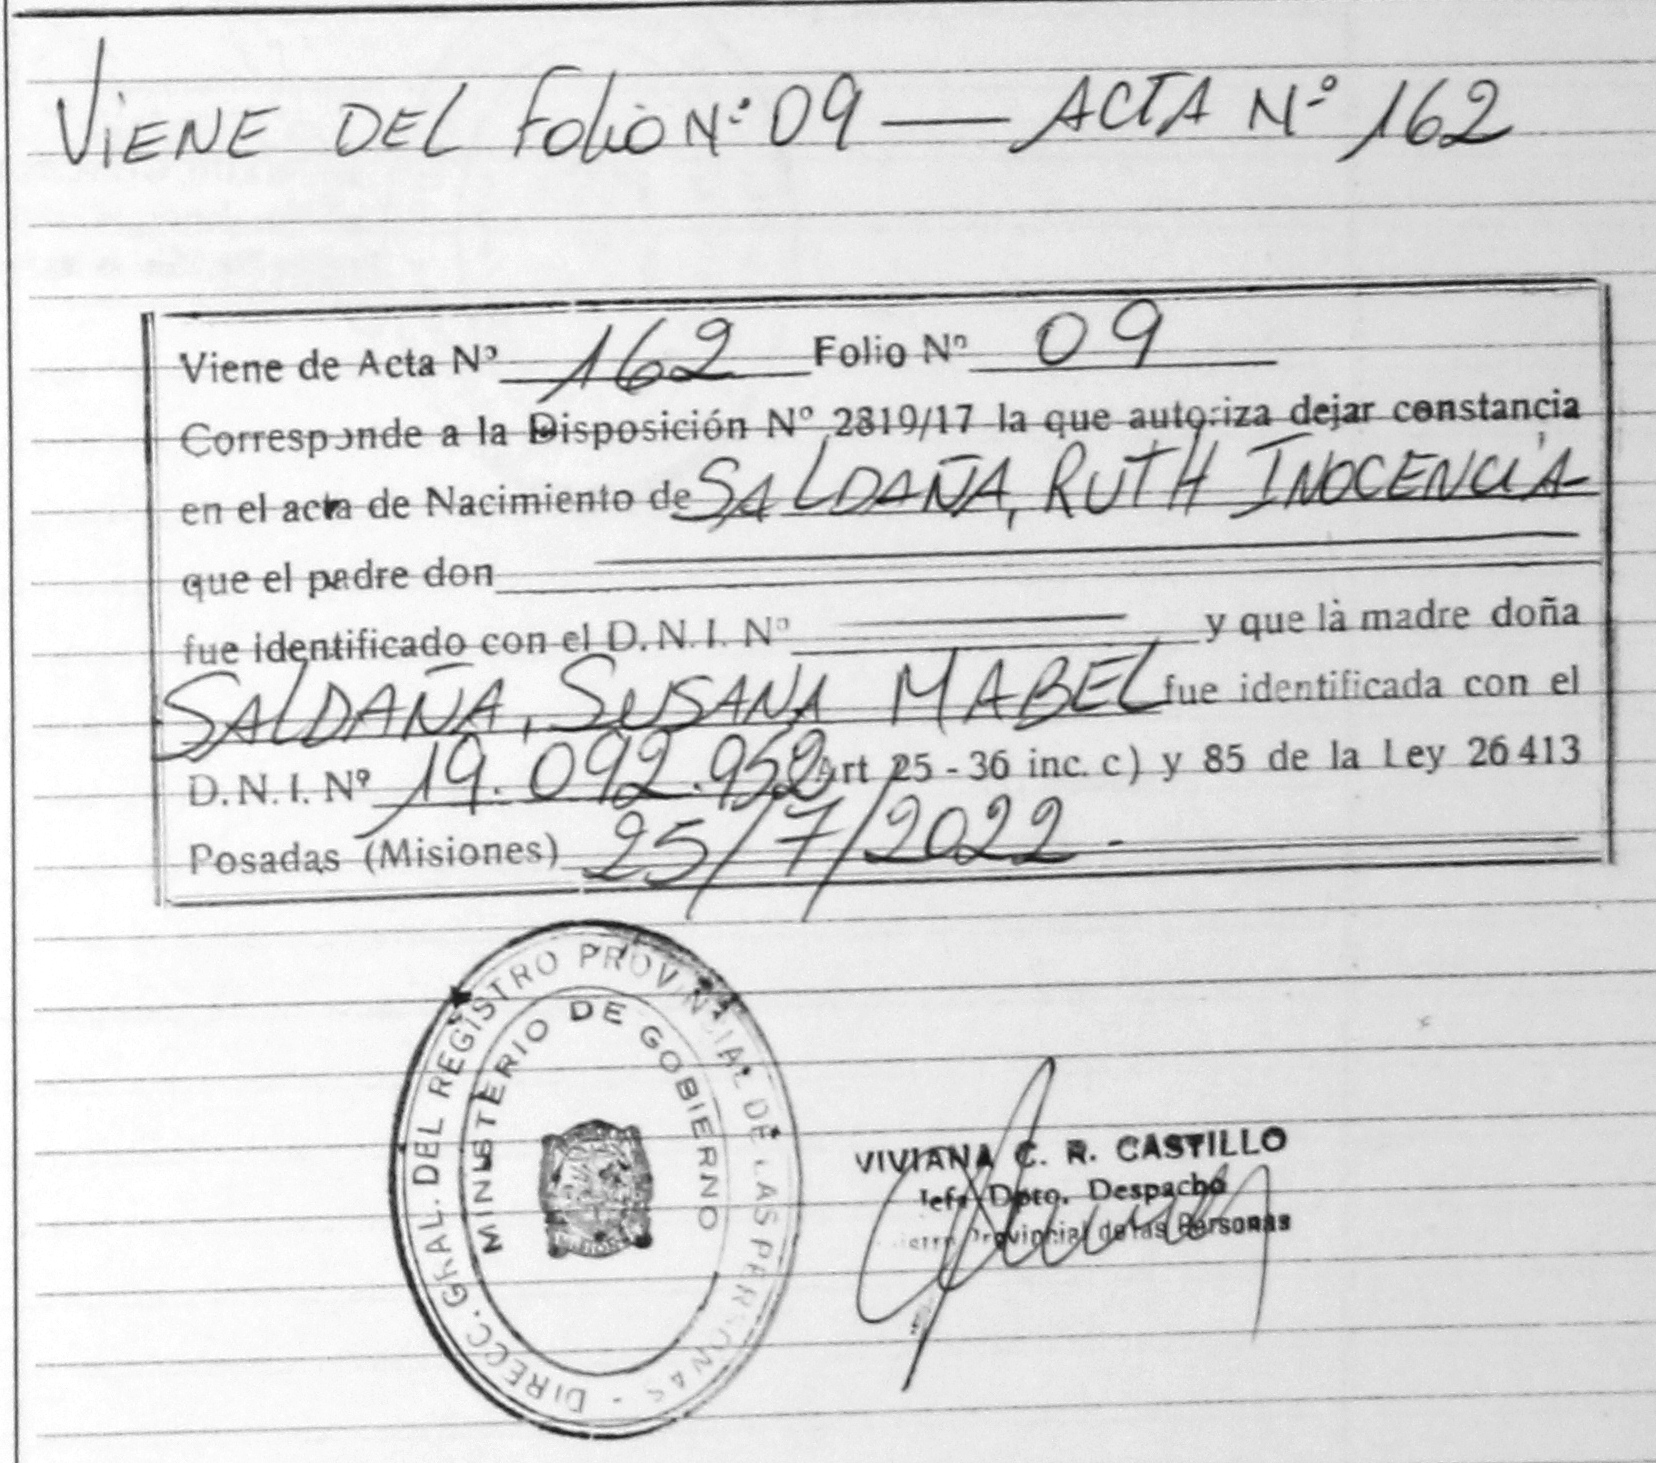 VIENE DEL FOLIO Nº 09 — ACTA Nº 162
Viene de Acta Nº 162 Folio Nº 09
Corresponde a la Disposición Nº 2819/17 la que autoriza dejar constancia
en el acta de Nacimiento de SALDAÑA, RUTH INOCENCIA
que el padre don
fue identificado con el D.N.I. Nº y que la madre doña
SALDAÑA, SUSANA MABEL fue identificada con el
D.N.I. Nº 19.092.952 Art 25-36 inc. c) y 85 de la Ley 26413
Posadas (Misiones) 25/7/2022.-
DIRECC. GRAL. DEL REGISTRO PROVINCIAL DE LAS PERSONAS -
MINISTERIO DE GOBIERNO
VIVIANA C. R. CASTILLO
Jefe Dpto. Despacho
Provincial de las Personas